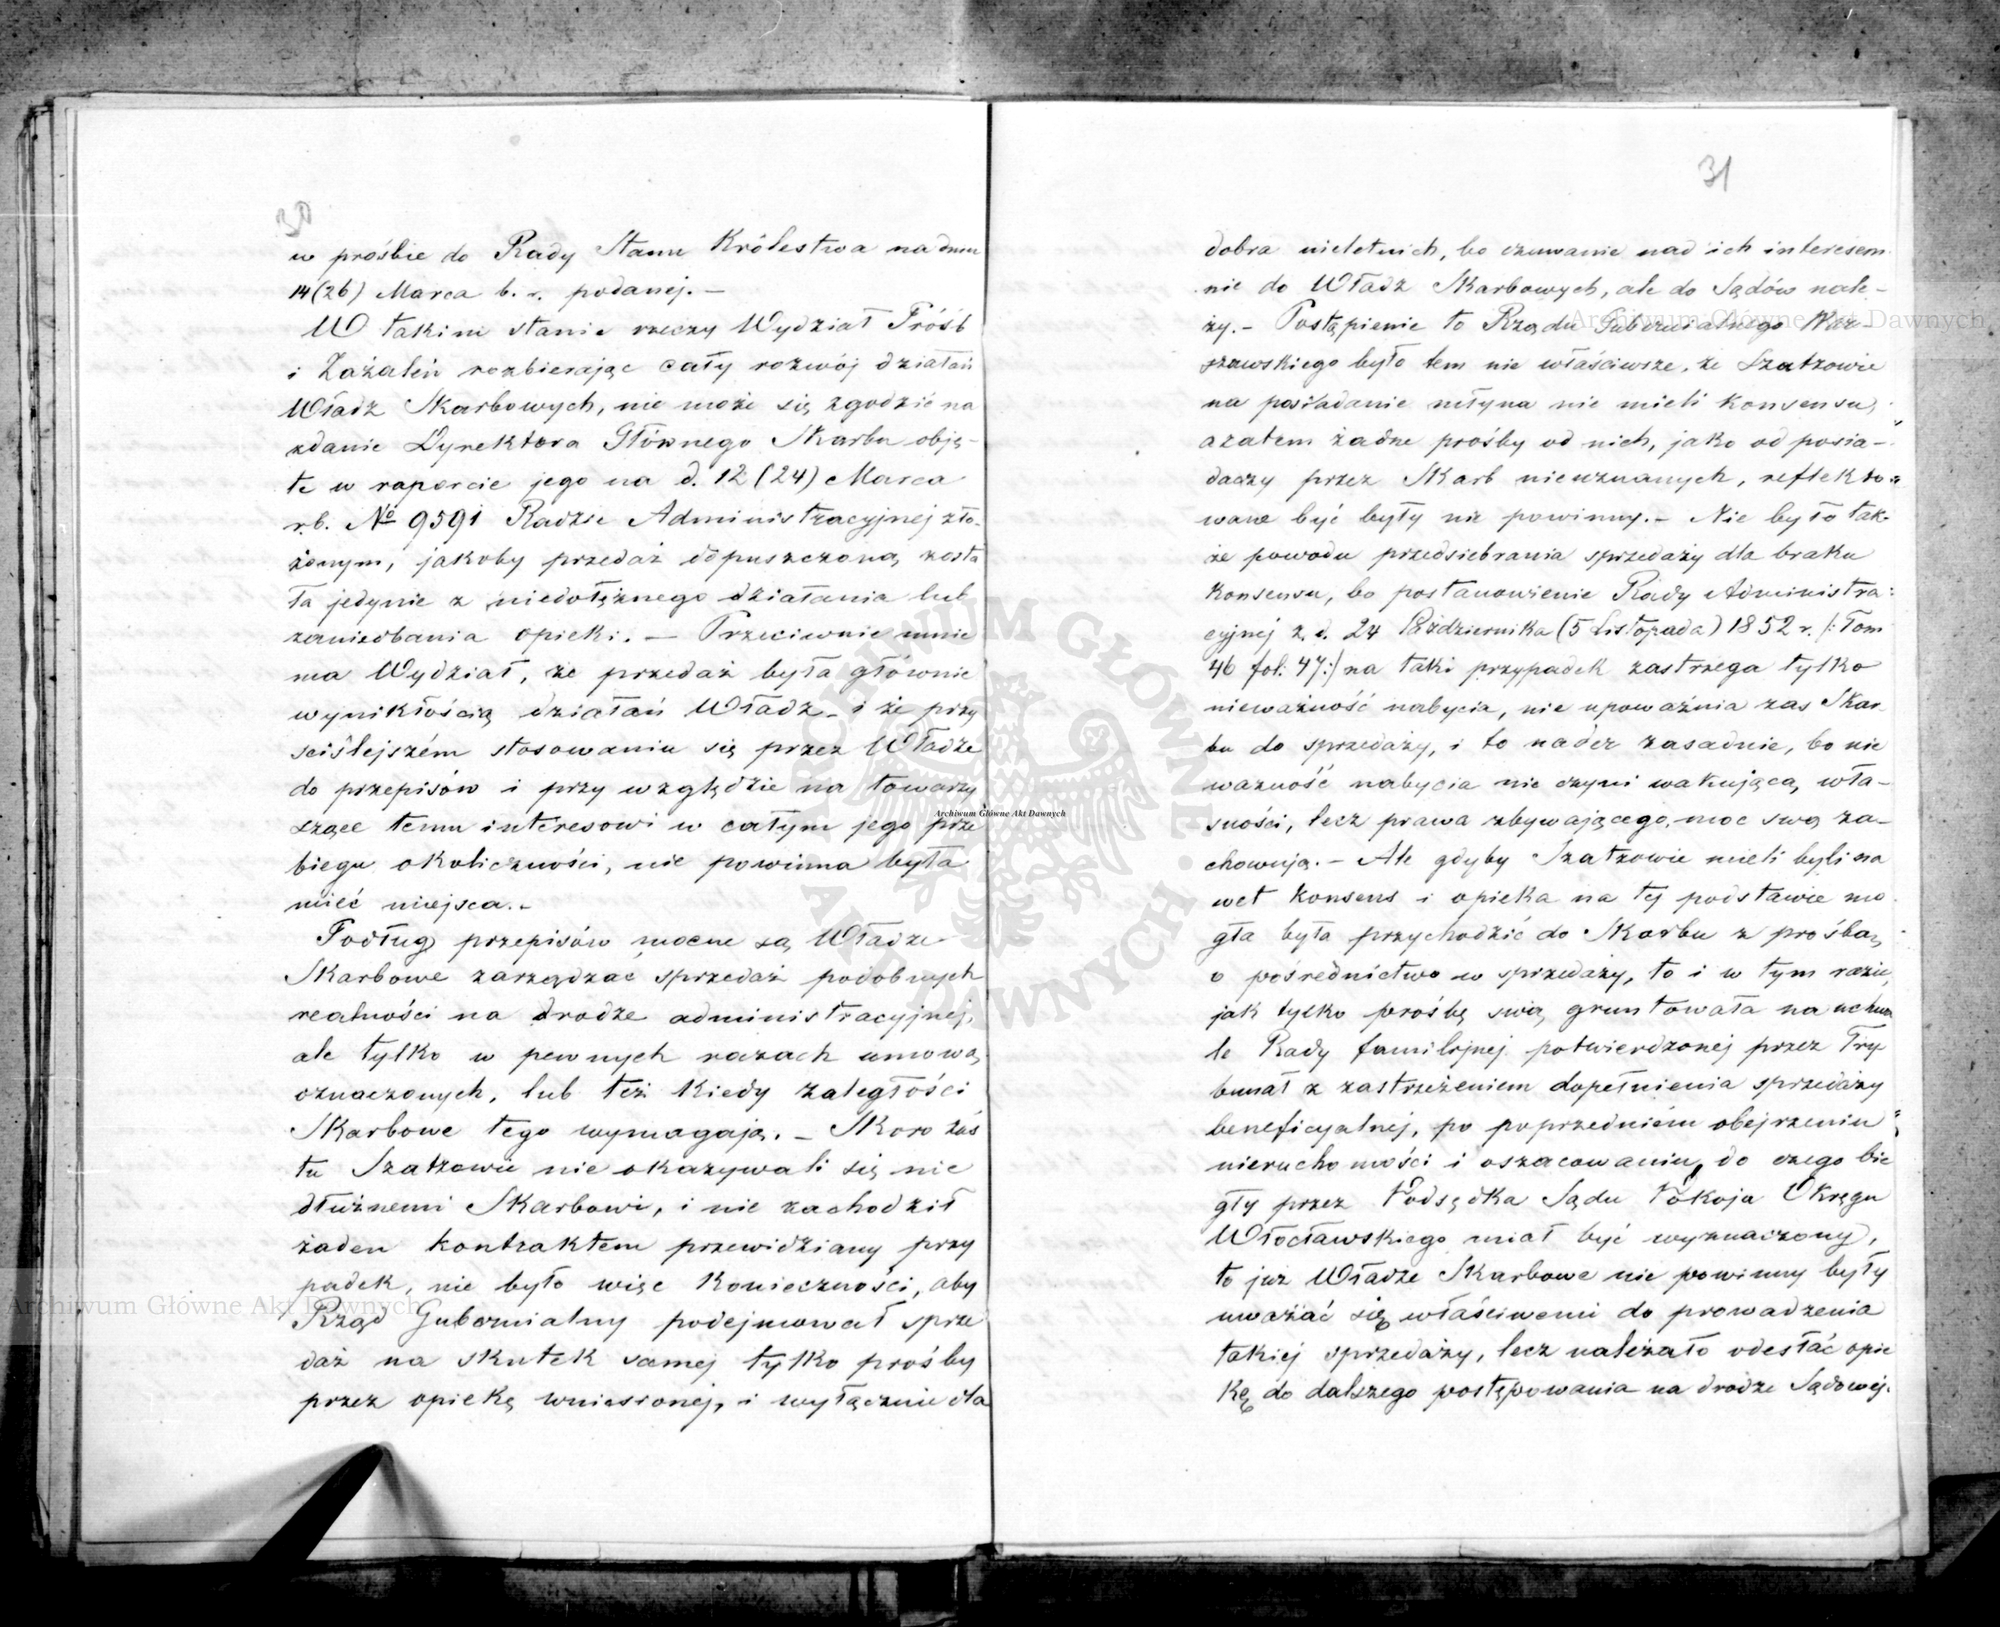 30
w prośbie do Rady Stanu Królestwa na dniu
14 (26) Marca b. r. podanej. —
W takim stanie rzeczy Wydział Próśb
i Zażaleń rozbierając cały rozwój działań
Władz Skarbowych, nie może się zgodzić na
zdanie Dyrektora Głównego Skarbu obję-
te w raporcie jego na d. 12 (24) Marca
r.b. No 9591 Radzie Administracyjnej zło-
żonym, jakoby przedaż dopuszczoną zosta
ła jedynie z niedołężnego działania lub
zaniedbania opieki. — Przeciwnie mnie
ma Wydział, że przedaż była głównie
wynikłością działań Władz - i że przy
ściślejszém stosowaniu się przez Władze
do przepisów i przy względzie na towarzy
szące temu interesowi w całym jego prze
biegu okoliczności, nie powinna była
mieć miejsca. -
Podług przepisów mocne są Władze
Skarbowe zarządzać sprzedaż podobnych
realności na drodze administracyjnej,
ale tylko w pewnych razach umową
oznaczonych, lub też kiedy zaległości
Skarbowe tego wymagają. — Skoro zaś
tu Szatzowie nie okazywali się nic
dłużnemi Skarbowi, i nie zachodził
żaden kontraktem przewidziany przy
padek, nie było więc konieczności, aby
Rząd Gubernialny podejmował sprze
daż na skutek samej tylko prośby
przez opiekę wniesionej, i wyłącznie dla
31
dobra nieletnich, bo czuwanie nad ich interesem
nie do Władz Skarbowych, ale do Sądów nale-
ży. — Postąpienie to Rządu Gubernialnego War-
szawskiego było tem nie właściwsze, że Szatzowie
na posiadanie młyna nie mieli konsensu,
azatem żadne prośby od nich, jako od posia-
daczy przez Skarb nieuznanych, reflekto-
wane być były nie powinny. — Nie było tak-
że powodu przedsiebrania sprzedaży dla braku
konsensu, bo postanowienie Rady Administra-
cyjnej z d. 24 Października (5 Listopada) 1852 r. /: Tom
46 fol: 47:/ na taki przypadek zastrzega tylko
nieważność nabycia, nie upoważnia zas Skar
bu do sprzedaży, i to nader zasadnie, bo nie
ważność nabycia nie czyni wakującą wła-
sności, lecz prawa zbywającego, moc swą za-
chowują. — Ale gdyby Szatzowie mieli byli na
wet konsens i opieka na tej podstawie mo
gła była przychodzić do Skarbu z prośbą
o pośrednictwo w sprzedaży, to i w tym razie,
jak tylko prośbę swą gruntowała na uchwa
le Rady familijnej potwierdzonej przez Try
bunał z zastrzeżeniem dopełnienia sprzedaży
beneficyalnej, po poprzedniém obejrzeniu
nieruchomości i oszacowaniu, do czego bie
gły przez Podsędka Sądu Pokoju Okręgu
Włocławskiego miał być wyznaczony,
to już Władze Skarbowe nie powinny były
uważać się właściwemi do prowadzenia
takiej sprzedaży, lecz należało odesłać opie
kę do dalszego postępowania na drodze Sądowej.
Archiwum Główne Akt Dawnych
Archiwum Główne Akt Dawnych
Archiwum Główne Akt Dawnych
ARCHIWUM GŁÓWNE AKT DAWNYCH